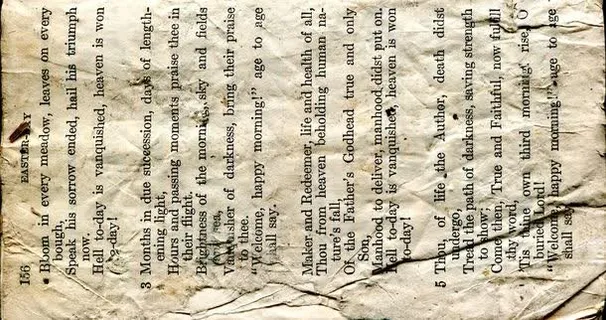 156 EASTER-DAY
Bloom in every meadow, leaves on every
bough,
Speak his sorrow ended, hail his triumph
now.
Hell to-day is vanquished, heaven is won
to-day!
3 Months in due succession, days of length-
ening light,
Hours and passing moments praise thee in
their flight.
Brightness of the morning, sky and fields
and sea,
Vanquisher of darkness, bring their praise
to thee.
"Welcome, happy morning!" age to age
shall say.
Maker and Redeemer, life and health of all,
Thou from heaven beholding human na-
ture's fall,
Of the Father's Godhead true and only
Son,
Manhood to deliver, manhood didst put on.
Hell to-day is vanquished, heaven is won
to-day!
5 Thou, of life the Author, death didst
undergo,
Tread the path of darkness, saving strength
to show;
Come then, True and Faithful, now fulfill
thy word,
'Tis thine own third morning! rise, O
buried Lord!
"Welcome, happy morning!" age to age
shall say.